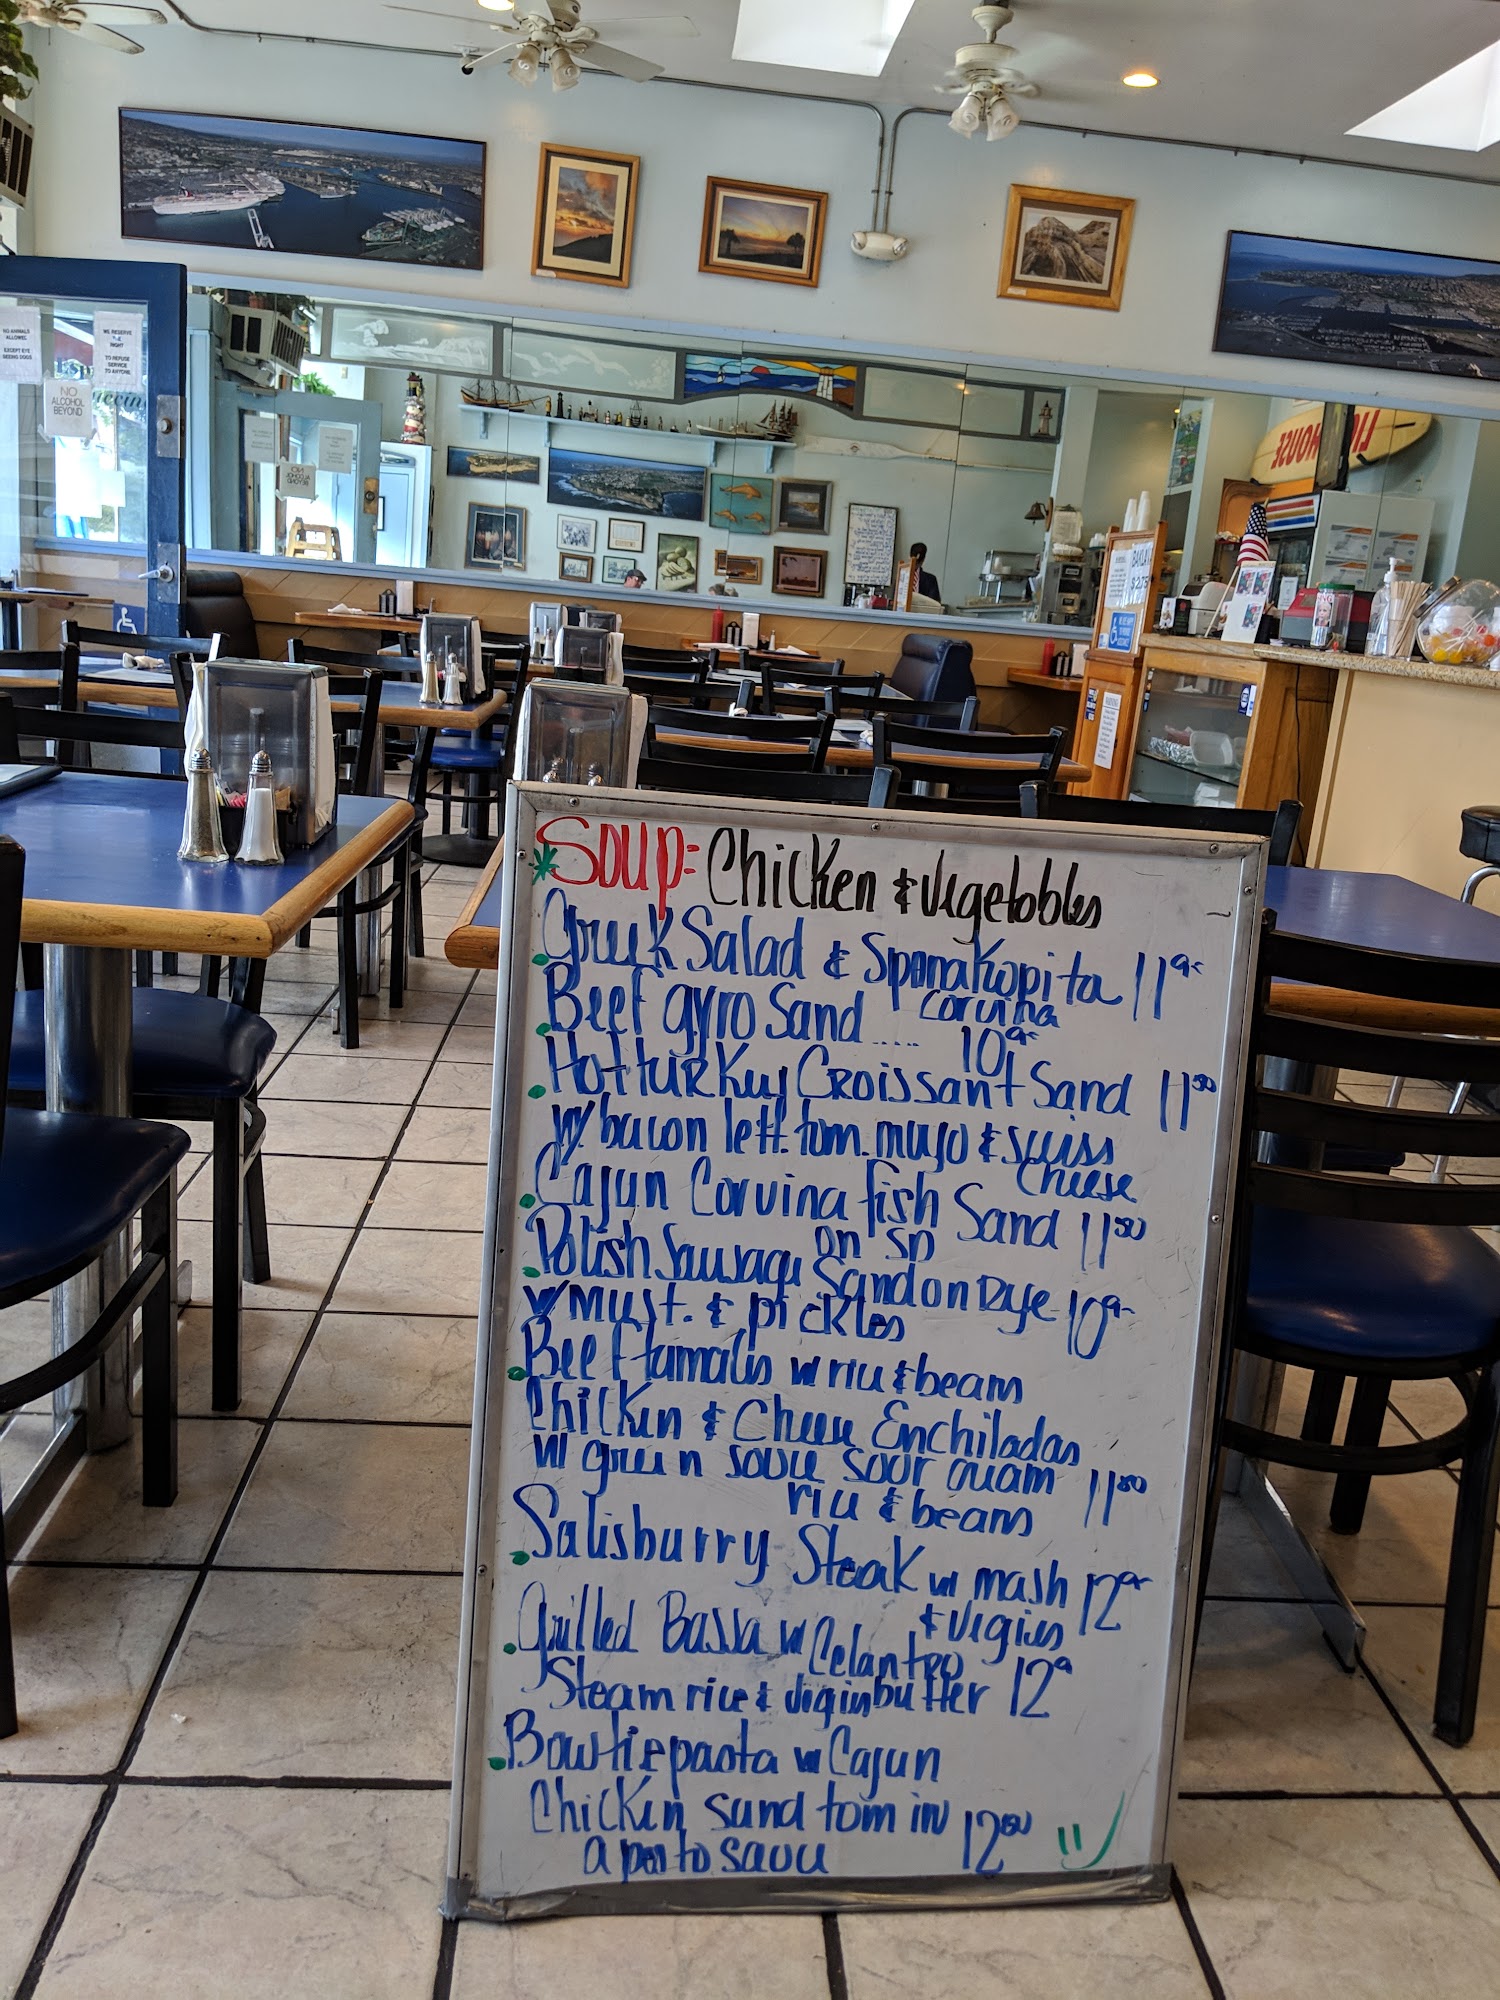 NO ANIMALS
ALLOWED.
EXCEPT EYE
SEEING DOGS
WE RESERVE
THE
RIGHT
TO REFUSE
SERVICE
TO ANYONE.
NO
ALCOHOL
BEYOND
BAKLAVA
$2.75
SOUP: Chicken & Vegetables
Greek Salad & Spanakopita 11
Corvina
Beef gyro Sand .... 10
Hot turkey Croissant Sand 11 50
w/ bacon lett. tom. mayo & swiss
cheese
Cajun Corvina fish Sand 11 50
on SD
Polish Sausage Sand on Rye 10
w/ must. & pickles
Beef tamales w rice & beans
Chicken & Cheese Enchiladas
w green sauce sour cream 11 50
rice & beans
Salisburry Steak w mash 12
& vegies
Grilled Bassa w Celantro
Steam rice & vegies butter 12
Bowtie pasta w Cajun
Chicken sund tom in 12 50
a pesto sauce